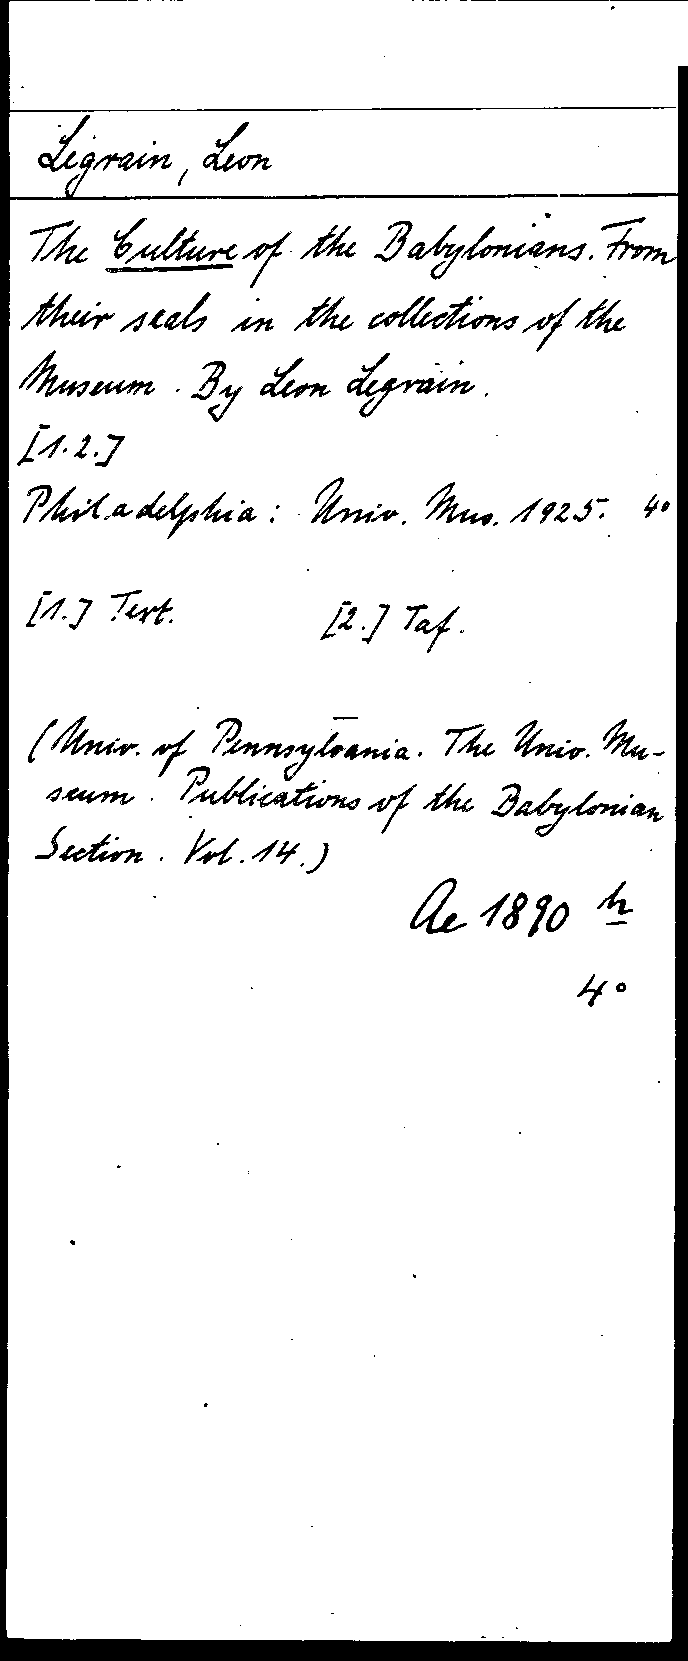 Legrain, Leon
The Culture of the Babylonians. From
their seals in the collections of the
Museum. By Leon Legrain.
[1.2.]
Philadelphia: Univ. Mus. 1925. 4°
[1.] Text. [2.] Taf.
(Univ. of Pennsylvania. The Univ. Mu-
seum. Publications of the Babylonian
Section. Vol. 14.)
Ae 1890 h
4°